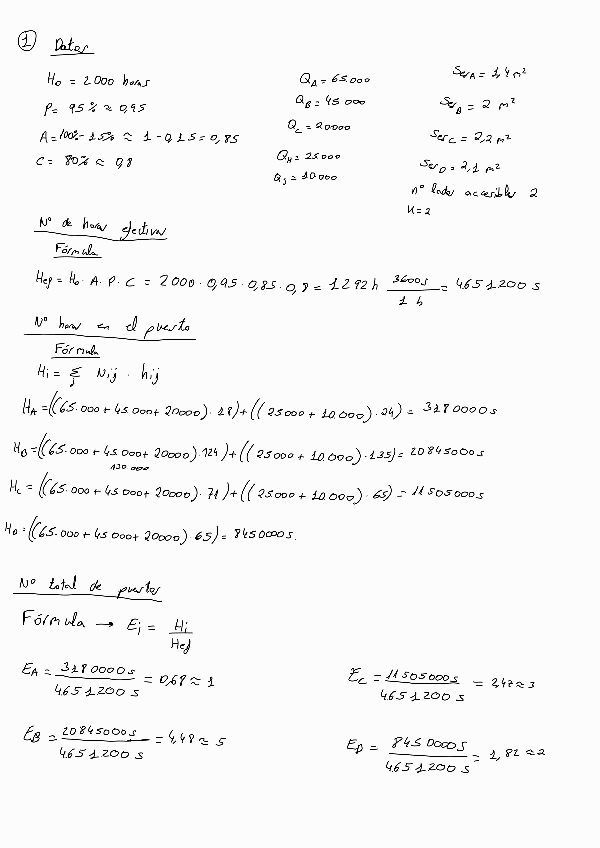 1 Datos
H₀ = 2000 horas
P = 95% ≈ 0,95
A = 100% - 15% ≈ 1 - 0,15 = 0,85
C = 80% ≈ 0,8
Q_A = 65.000
Q_B = 45 000
Q_C = 20000
Q_H = 25000
Q_J = 10.000
Ser_A = 1,4 m²
Ser_B = 2 m²
Ser_C = 2,2 m²
Ser_D = 2,1 m²
nº lados accesibles 2
K = 2
Nº de horas efectivas
Fórmula
Hef = H₀ · A · P · C = 2000 · 0,95 · 0,85 · 0,8 = 1292 h 3600s / 1 h = 4651200 s
Nº horas en el puesto
Fórmula
Hi = Σ_j Nij · hij
H_A = ((65.000 + 45.000 + 20000) · 18) + ((25000 + 10.000) · 24) = 3180000 s
H_B = ((65.000 + 45.000 + 20000) · 124) + ((25000 + 10.000) · 135) = 20845000 s
130 000
H_C = ((65.000 + 45.000 + 20000) · 71) + ((25000 + 10.000) · 65) = 11505000 s
H_D = ((65.000 + 45000 + 20000) · 65) = 8450000 s.
Nº total de puestos
Fórmula → Ei = Hi / Hef
E_A = 3180000 s / 4651200 s = 0,68 ≈ 1
E_C = 11505000 s / 4651200 s = 2,47 ≈ 3
E_B = 20845000 s / 4651200 s = 4,48 ≈ 5
E_D = 8450000 s / 4651200 s = 1,82 ≈ 2